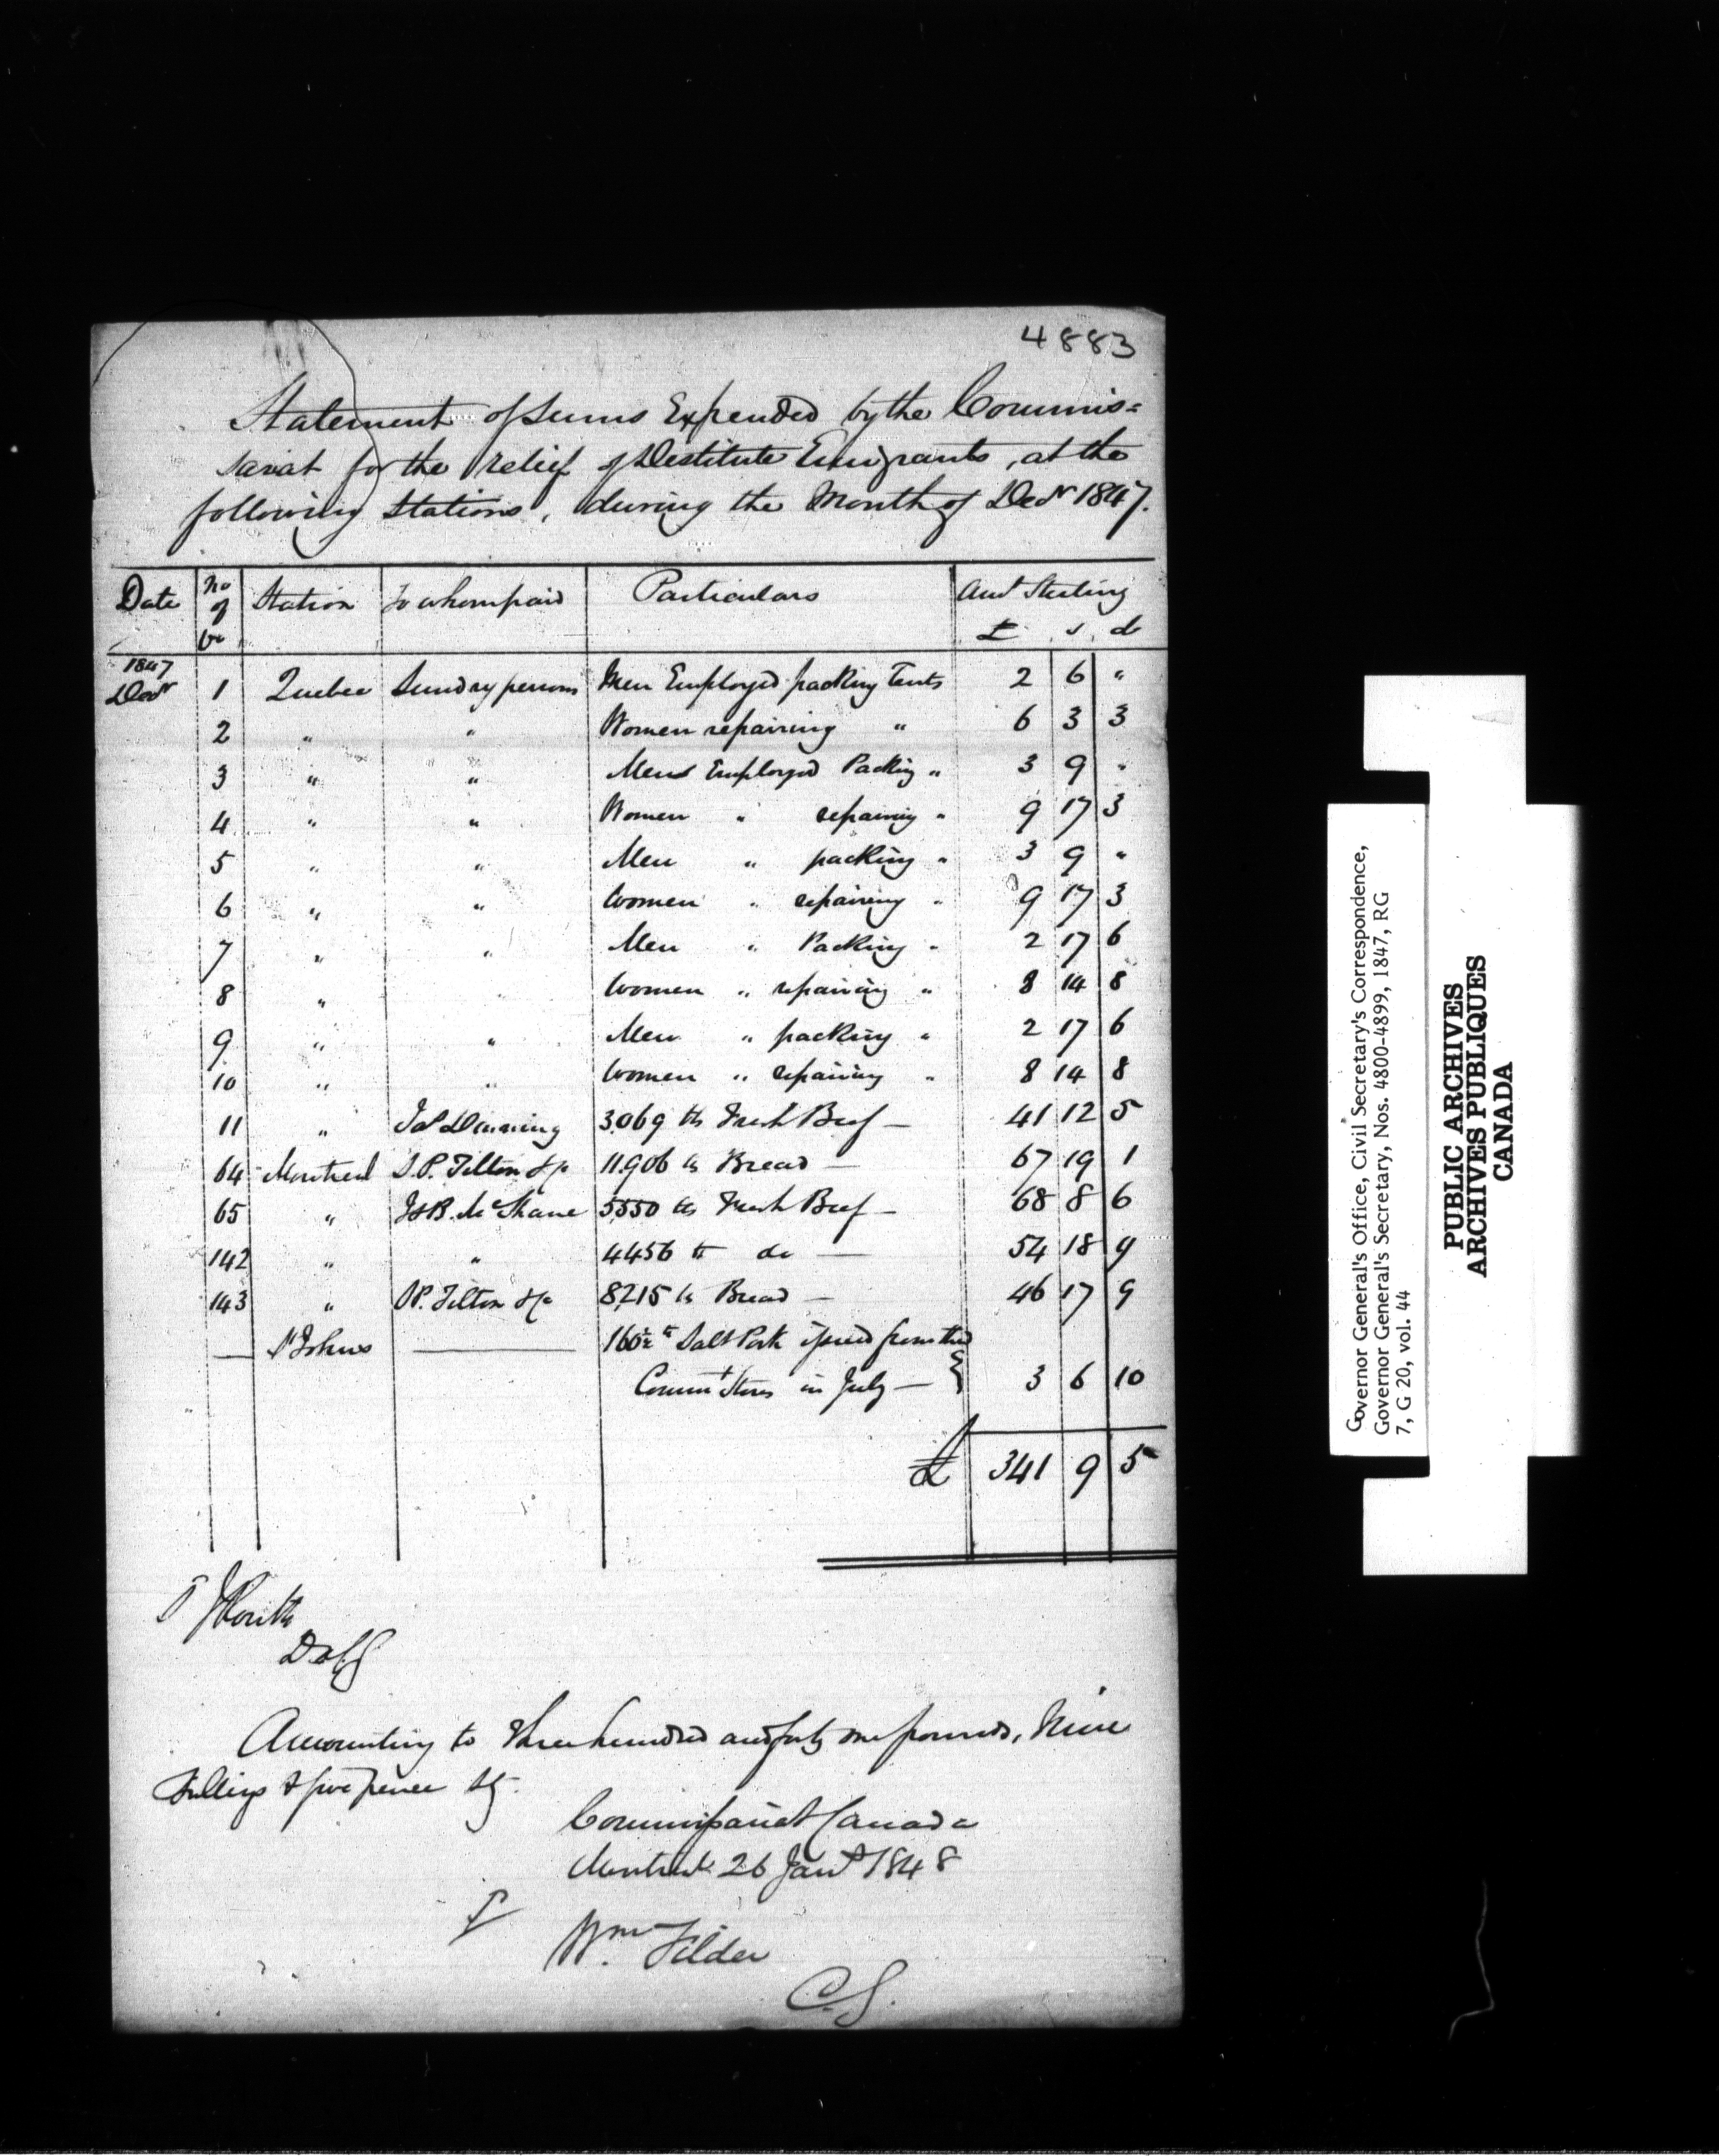 4883
Statement of Sums Expended by the Commis=
sariat for the relief of Destitute Emigrants, at the
following Stations, during the Month of Decr 1847.
Date No of Vr Station To whom paid Particulars Amt Sterling
£ s. d
1847
Decr 1 Quebec Sundry persons Men Employed packing Tents 2 6 "
2 " " Women repairing " 6 3 3
3 " " Men Employed Packing " 3 9 "
4 " " Women " repairing " 9 17 3
5 " " Men " packing " 3 9 "
6 " " Women " repairing " 9 17 3
7 " " Men " Packing " 2 17 6
8 " Women " repairing " 8 14 8
9 " " Men " packing " 2 17 6
10 " " Women " repairing " 8 14 8
11 " 3,069 lbs Fresh Beef — 41 12 5
64 Montreal Tilton & Co 11,906 lbs Bread — 67 19 1
65 " McShane 5550 lbs Fresh Beef — 68 8 6
142 " " 4456 lb do — 54 18 9
143 " Tilton & Co 8215 lbs Bread — 46 17 9
— St Johns — 160½ lb Salt Pork issued from the
Commt Stores in July — } 3 6 10
£ 341 9 5
Routh
DACG
Amounting to Three hundred and forty one pounds, Nine
Shillings & five pence Stg.
Commissariat Canada
Montreal 26 Jany 1848
Wm Filder
C.G.
Governor General's Office, Civil Secretary's Correspondence,
Governor General's Secretary, Nos. 4800-4899, 1847, RG
7, G 20, vol. 44
PUBLIC ARCHIVES
ARCHIVES PUBLIQUES
CANADA